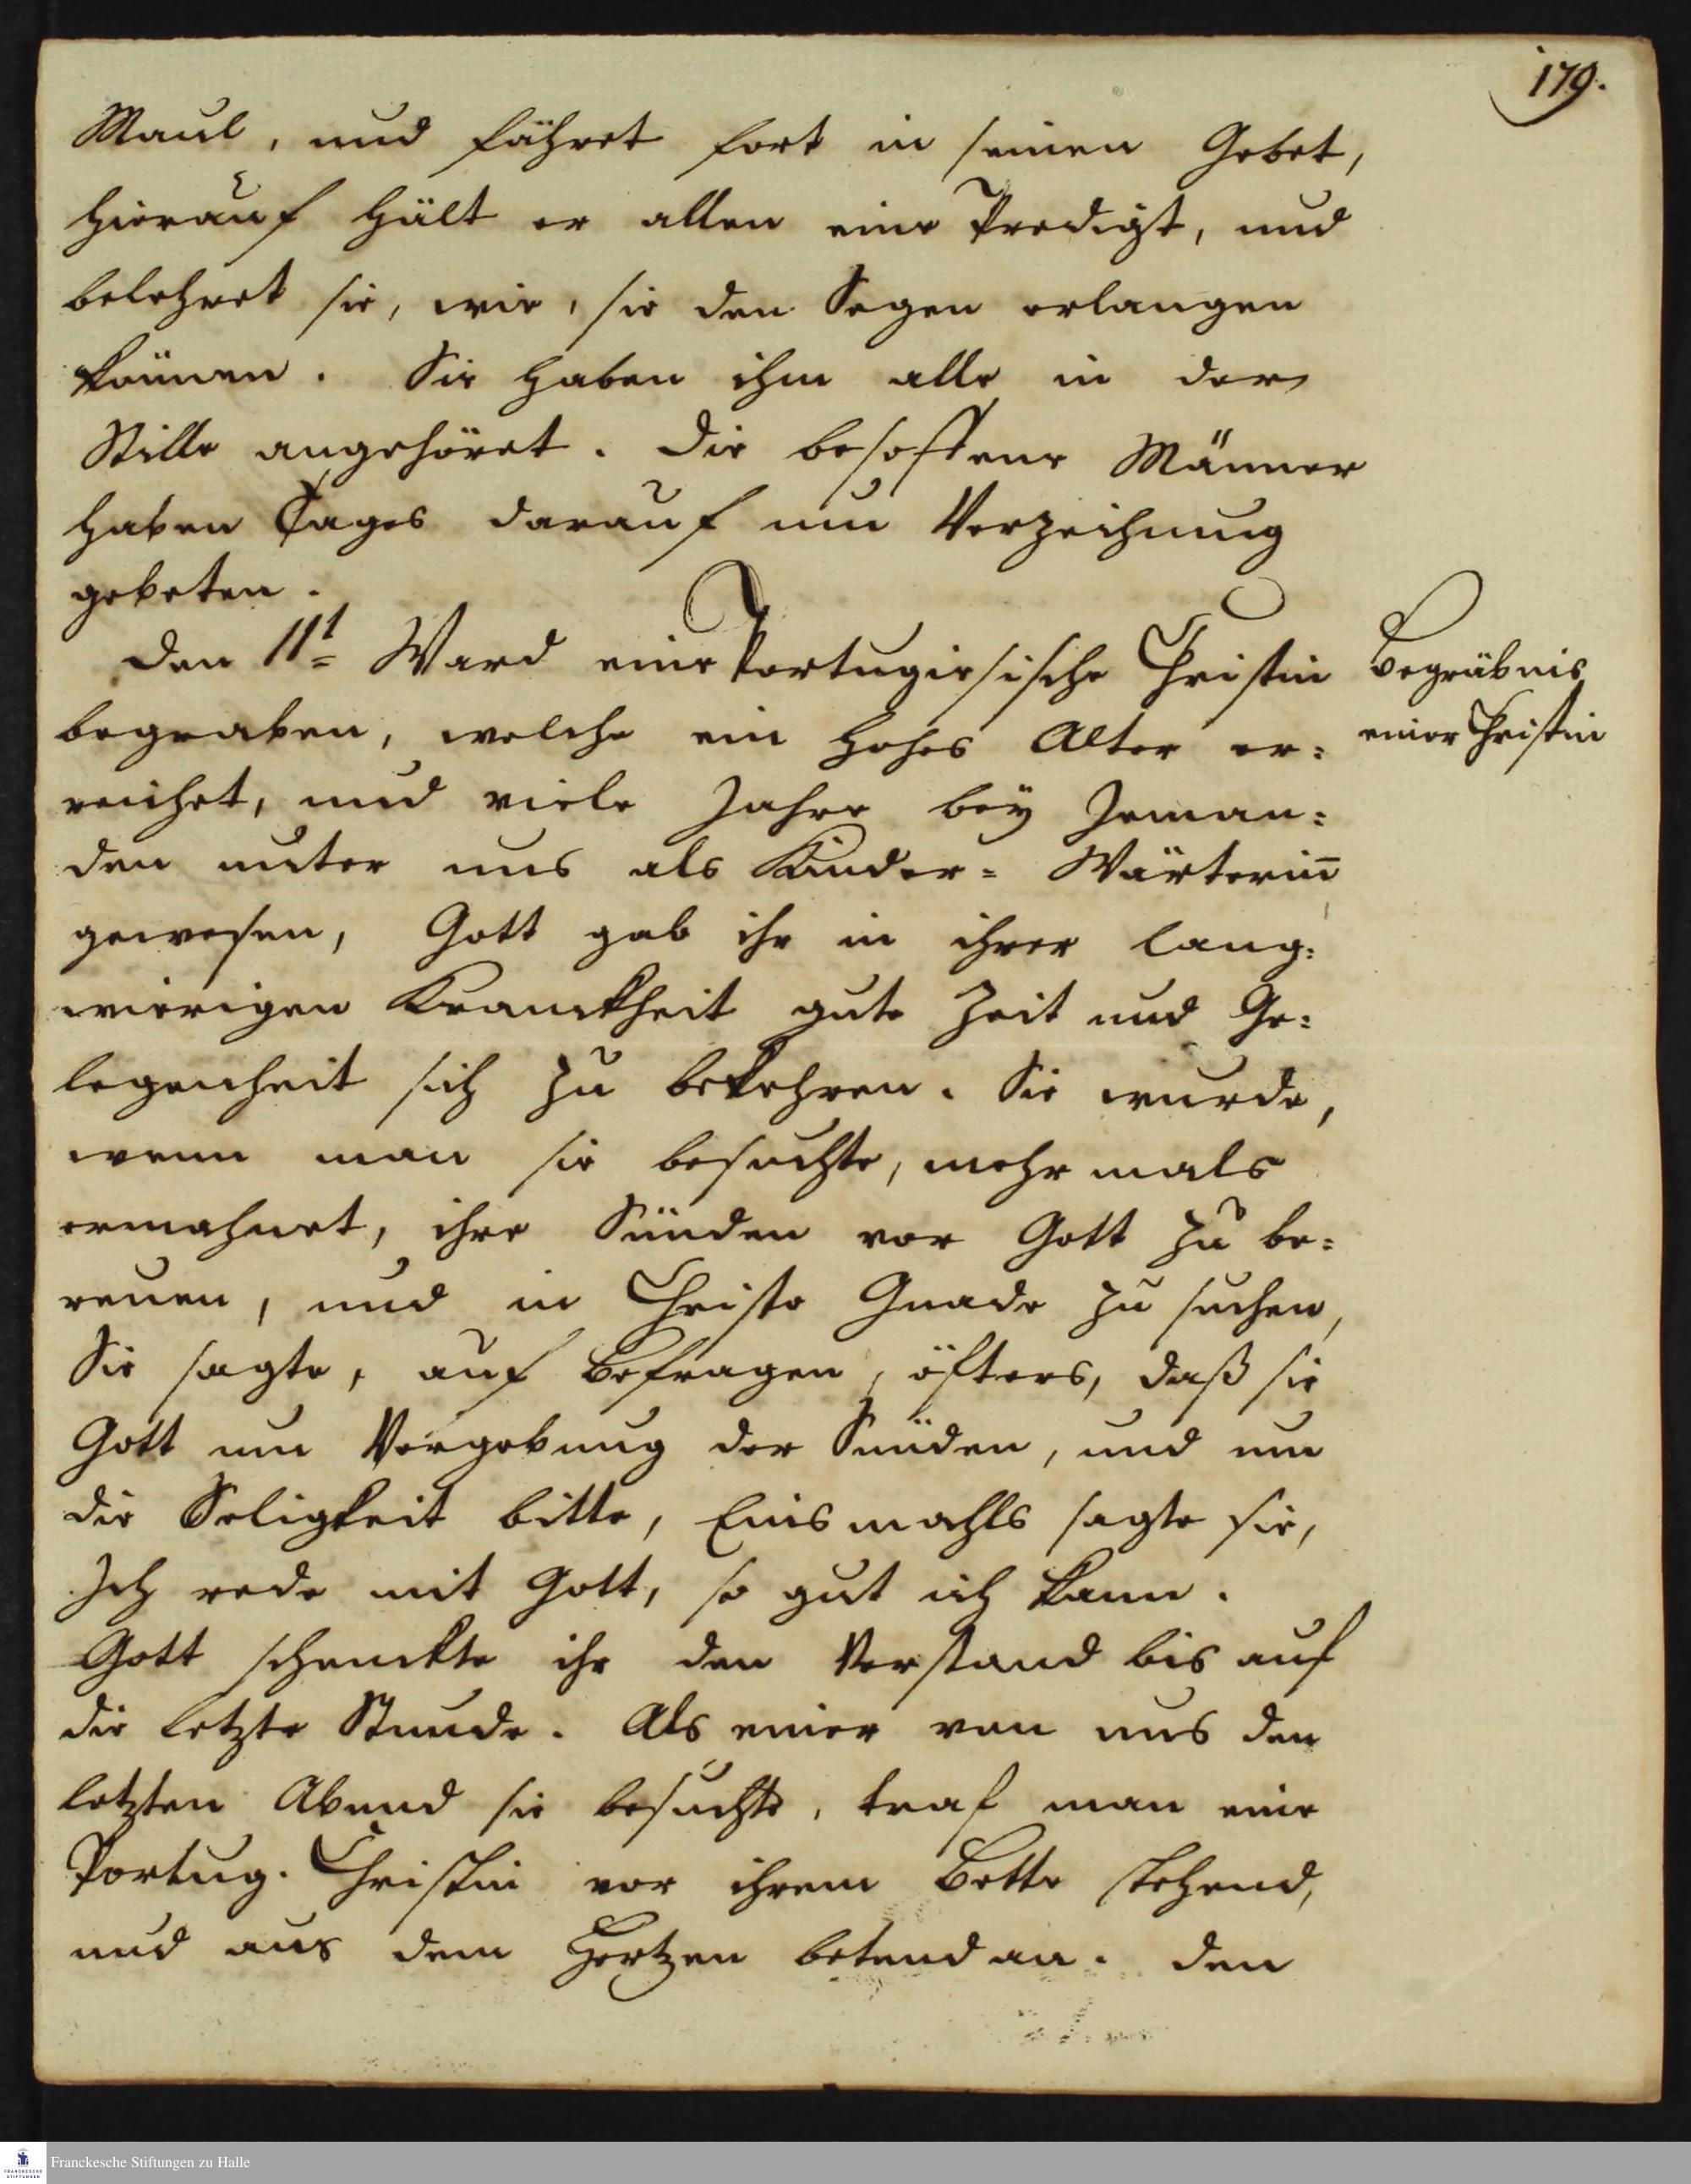 179.
Maul, und fähret fort in seinen Gebet,
hierauf hält er allen eine Predigt, und
belehret sie, wie, sie den Segen erlangen
können. Sie haben ihm alle in der
Stille angehöret. Die besoffene Männer
haben Tages darauf um Verzeihung
gebeten.
Den 11t Ward eine Portugiesische Christin
begraben, welche ein hohes Alter er=
reichet, und viele Jahre bey Jeman=
den unter uns als Kinder= Wärterin̄
gewesen, Gott gab ihr in ihrer lang=
wierigen Kranckheit gute Zeit und Ge=
legenheit sich zu bekehren. Sie wurde,
wenn man sie besuchte, mehrmals
ermahnet, ihre Sünden vor Gott zu be=
reuen, und in Christo Gnade zu suchen,
Sie sagte, auf Befragen, öfters, daß sie
Gott um Vergebung der Sünden, und um
die Seligkeit bitte, Einsmahls sagte sie,
Ich rede mit Gott, so gut ich kann.
Gott schenckte ihr den Verstand bis auf
die letzte Stunde. Als einer von uns den
letzten Abend sie besuchte, traf man eine
Portug. Christin vor ihrem Bette stehend,
und aus dem Hertzen betend an. Den
Begräbnis
einer Christin
Franckesche Stiftungen zu Halle
FRANCKESCHE
STIFTUNGEN